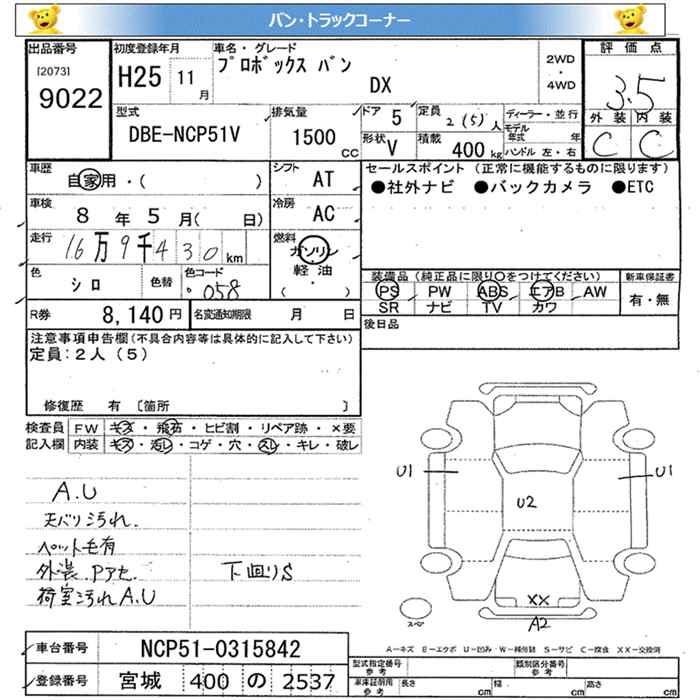 バン・トラックコーナー
出品番号
[2073]
9022
初度登録年月
H25 11月
車名・グレード
プロボックス バン
DX
2WD
・
4WD
評価点
3.5
外装 内装
C C
型式
DBE-NCP51V
排気量
1500
CC
ドア 5
形状 V
定員 2 (5) 人
積載 400 kg
ディーラー・並行
モデル年式 年
ハンドル 左・右
車歴
自家用・( )
シフト AT
セールスポイント (正常に機能するものに限ります)
●社外ナビ ●バックカメラ ●ETC
車検
8 年 5 月( 日)
冷房 AC
走行
16万9千430km
燃料
ガソリン
軽油
・( )
色
シロ
色替
色コード
058
装備品 (純正品に限り○をつけてください)
PS PW ABS エアB AW
SR ナビ TV カワ
新車保証書
有・無
R券 8,140円
名変通知期限 月 日
後日品
注意事項申告欄 (不具合内容等は具体的に記入して下さい)
定員:2人 (5)
修復歴 有 〔箇所 〕
検査員
記入欄
FW キズ・飛石・ヒビ割・リペア跡・×要
内装 キズ・汚レ・コゲ・穴・スレ・キレ・破レ
A.U
天バリ汚れ.
ペット毛有
外装.Pアセ.
下回りS
荷室汚れA.U
U1
U1
U2
XX
A2
スペア
A-キズ E-エクボ U-凹み W-補修跡 S-サビ C-腐食 XX-交換済
車台番号 NCP51-0315842
登録番号 宮城 400 の 2537
型式指定番号
参考
類別区分番号
参考
車体証明用
参考
長さ cm
幅 cm
高さ cm